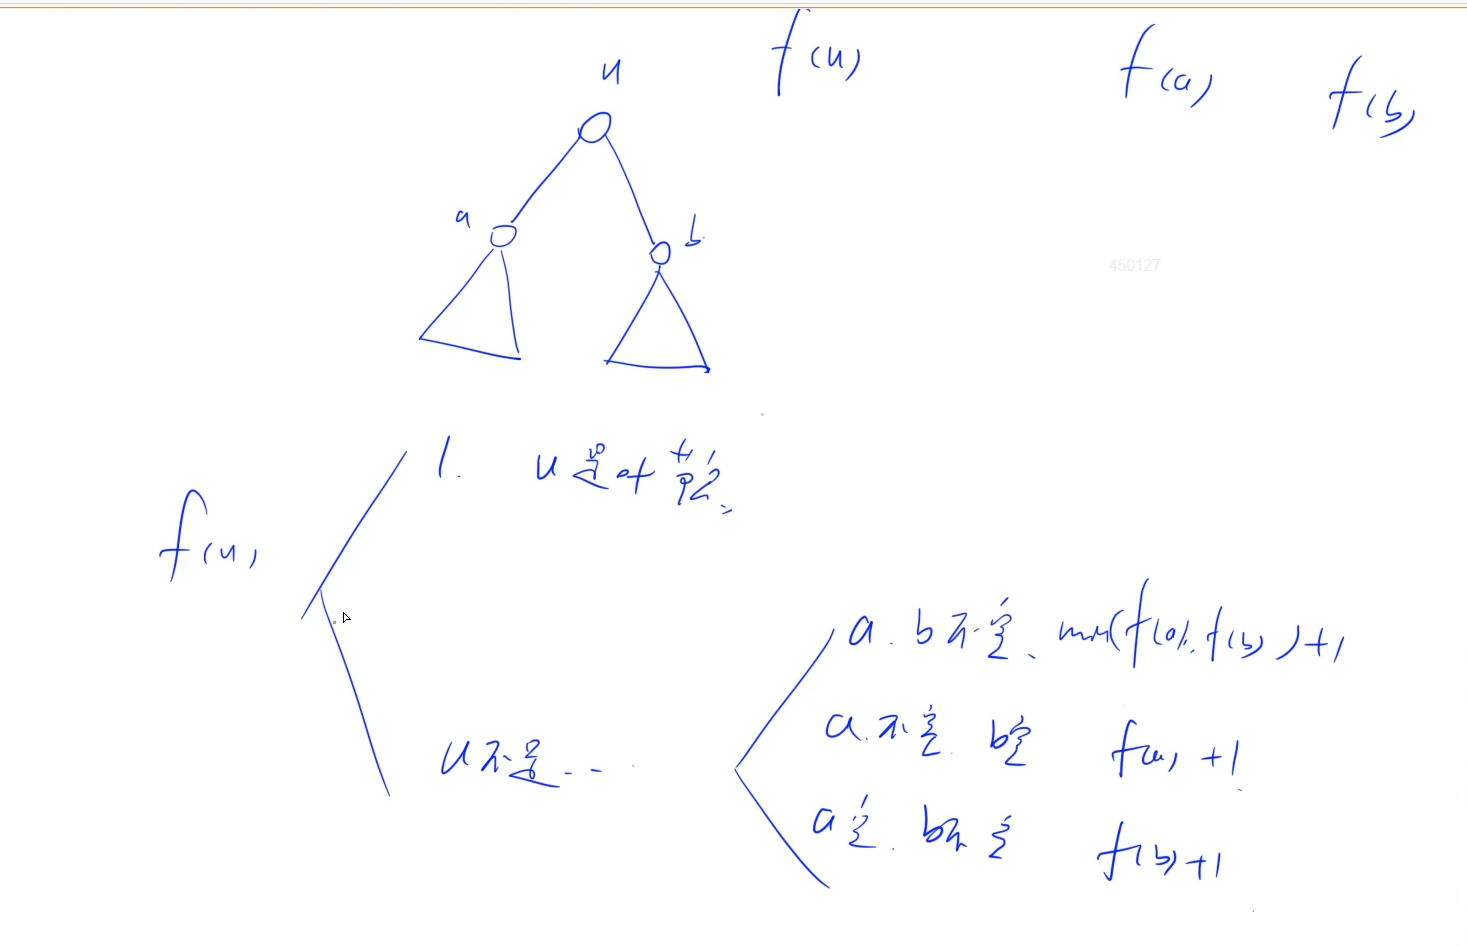 u
f(u)
f(a)
f(b)
a
b
450127
1. u是叶节点
f(u)
a. b不空、min(f(a), f(b))+1
u不是...
a.不空 b空 f(a)+1
a空. b不空 f(b)+1